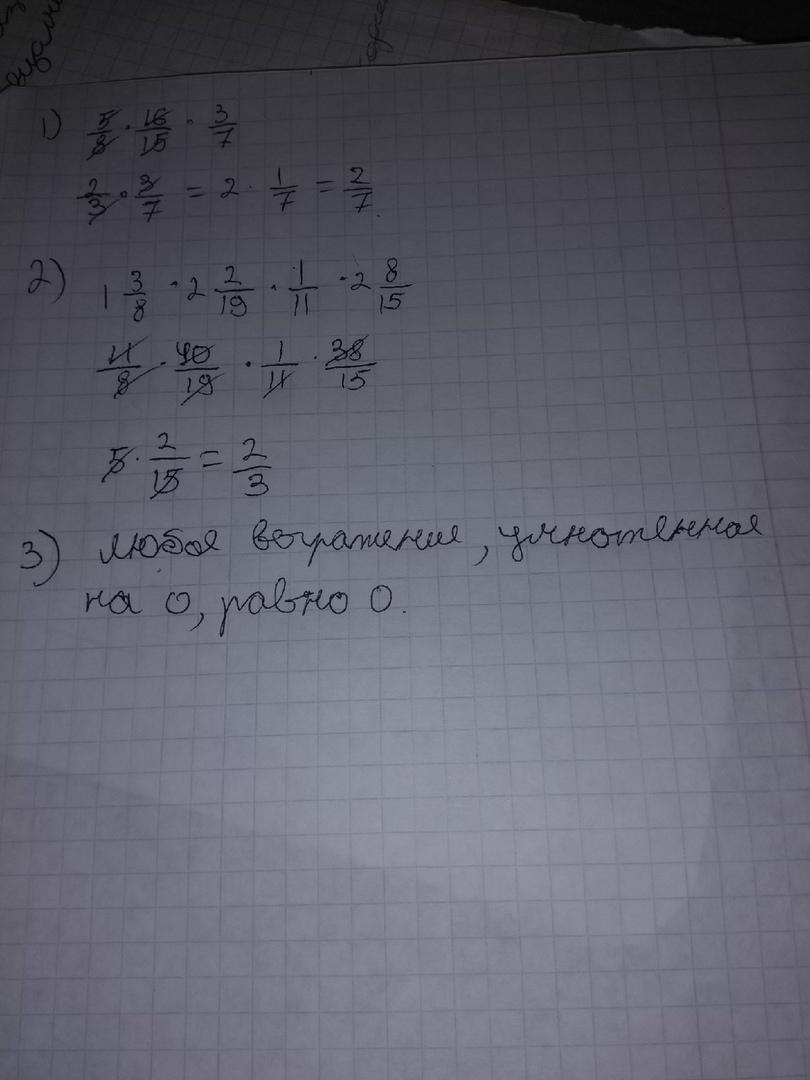 1) 5/8 · 16/15 · 3/7
2/3 · 3/7 = 2 · 1/7 = 2/7.
2) 1 3/8 · 2 2/19 · 1/11 · 2 8/15
11/8 · 40/19 · 1/11 · 38/15
5 · 2/15 = 2/3
3) любое выражение, умноженное
на 0, равно 0.